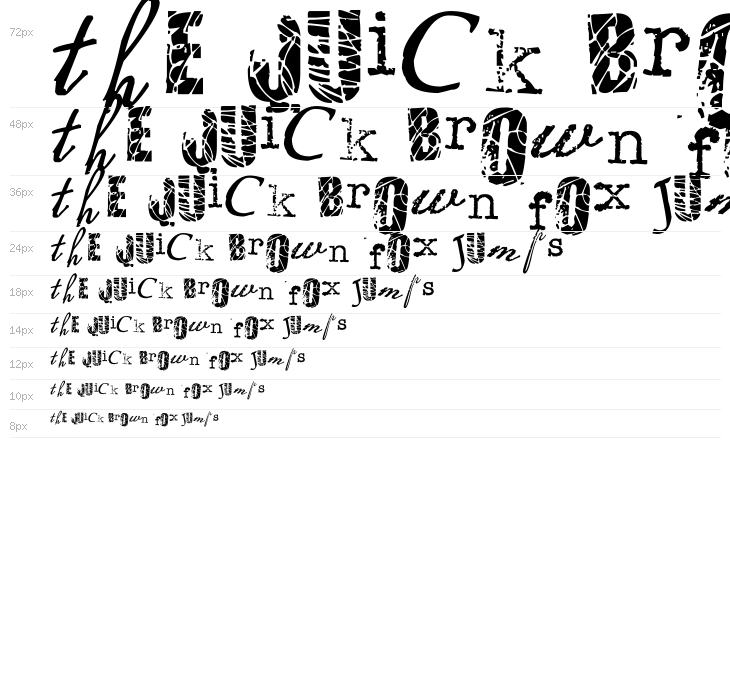 72px thE QUiCk BrO
48px thE QUiCk BrOwn f
36px thE QUiCk BrOwn fOx JUm
24px thE QUiCk BrOwn fOx JUmps
18px thE QUiCk BrOwn fOx JUmps
14px thE QUiCk BrOwn fOx JUmps
12px thE QUiCk BrOwn fOx JUmps
10px thE QUiCk BrOwn fOx JUmps
8px thE QUiCk BrOwn fOx JUmps